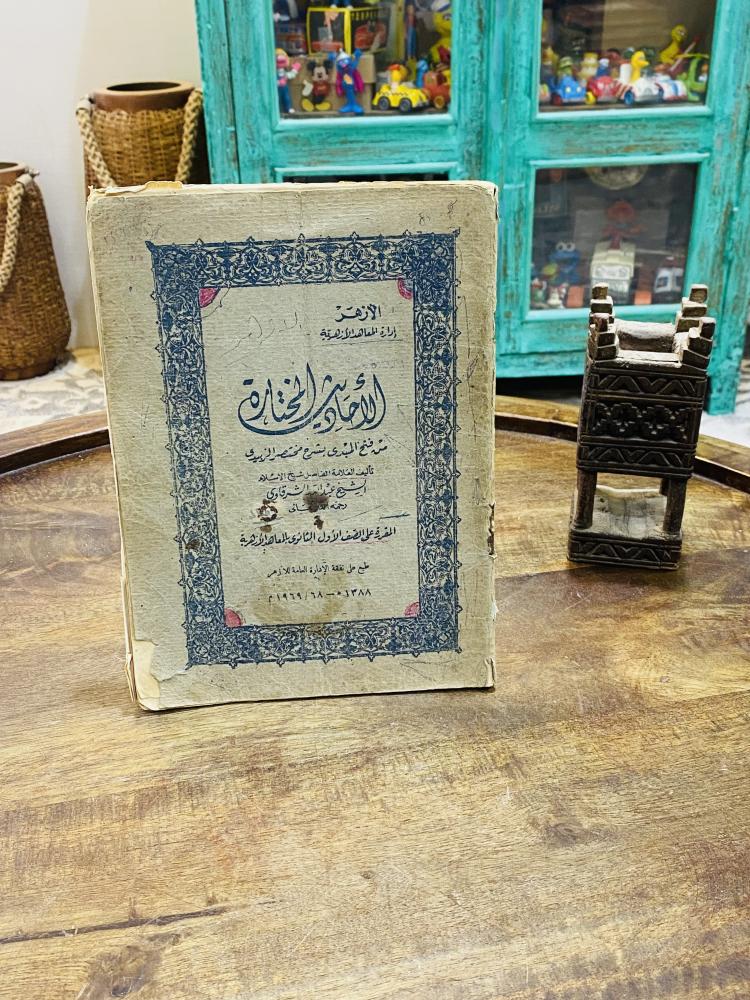 الأزهر
إدارة المعاهد الأزهرية
الأحاديث المختارة
من فتح المبدى بشرح مختصر الزبيدى
تأليف العلامة الفاضل شيخ الاسلام
الشيخ عبد الله الشرقاوى
رحمه الله
المقررة على الصف الأول الثانوى بالمعاهد الأزهرية
طبع على نفقة الإدارة العامة للأزهر
١٣٨٨ ه‍ — ٦٨ / ١٩٦٩ م